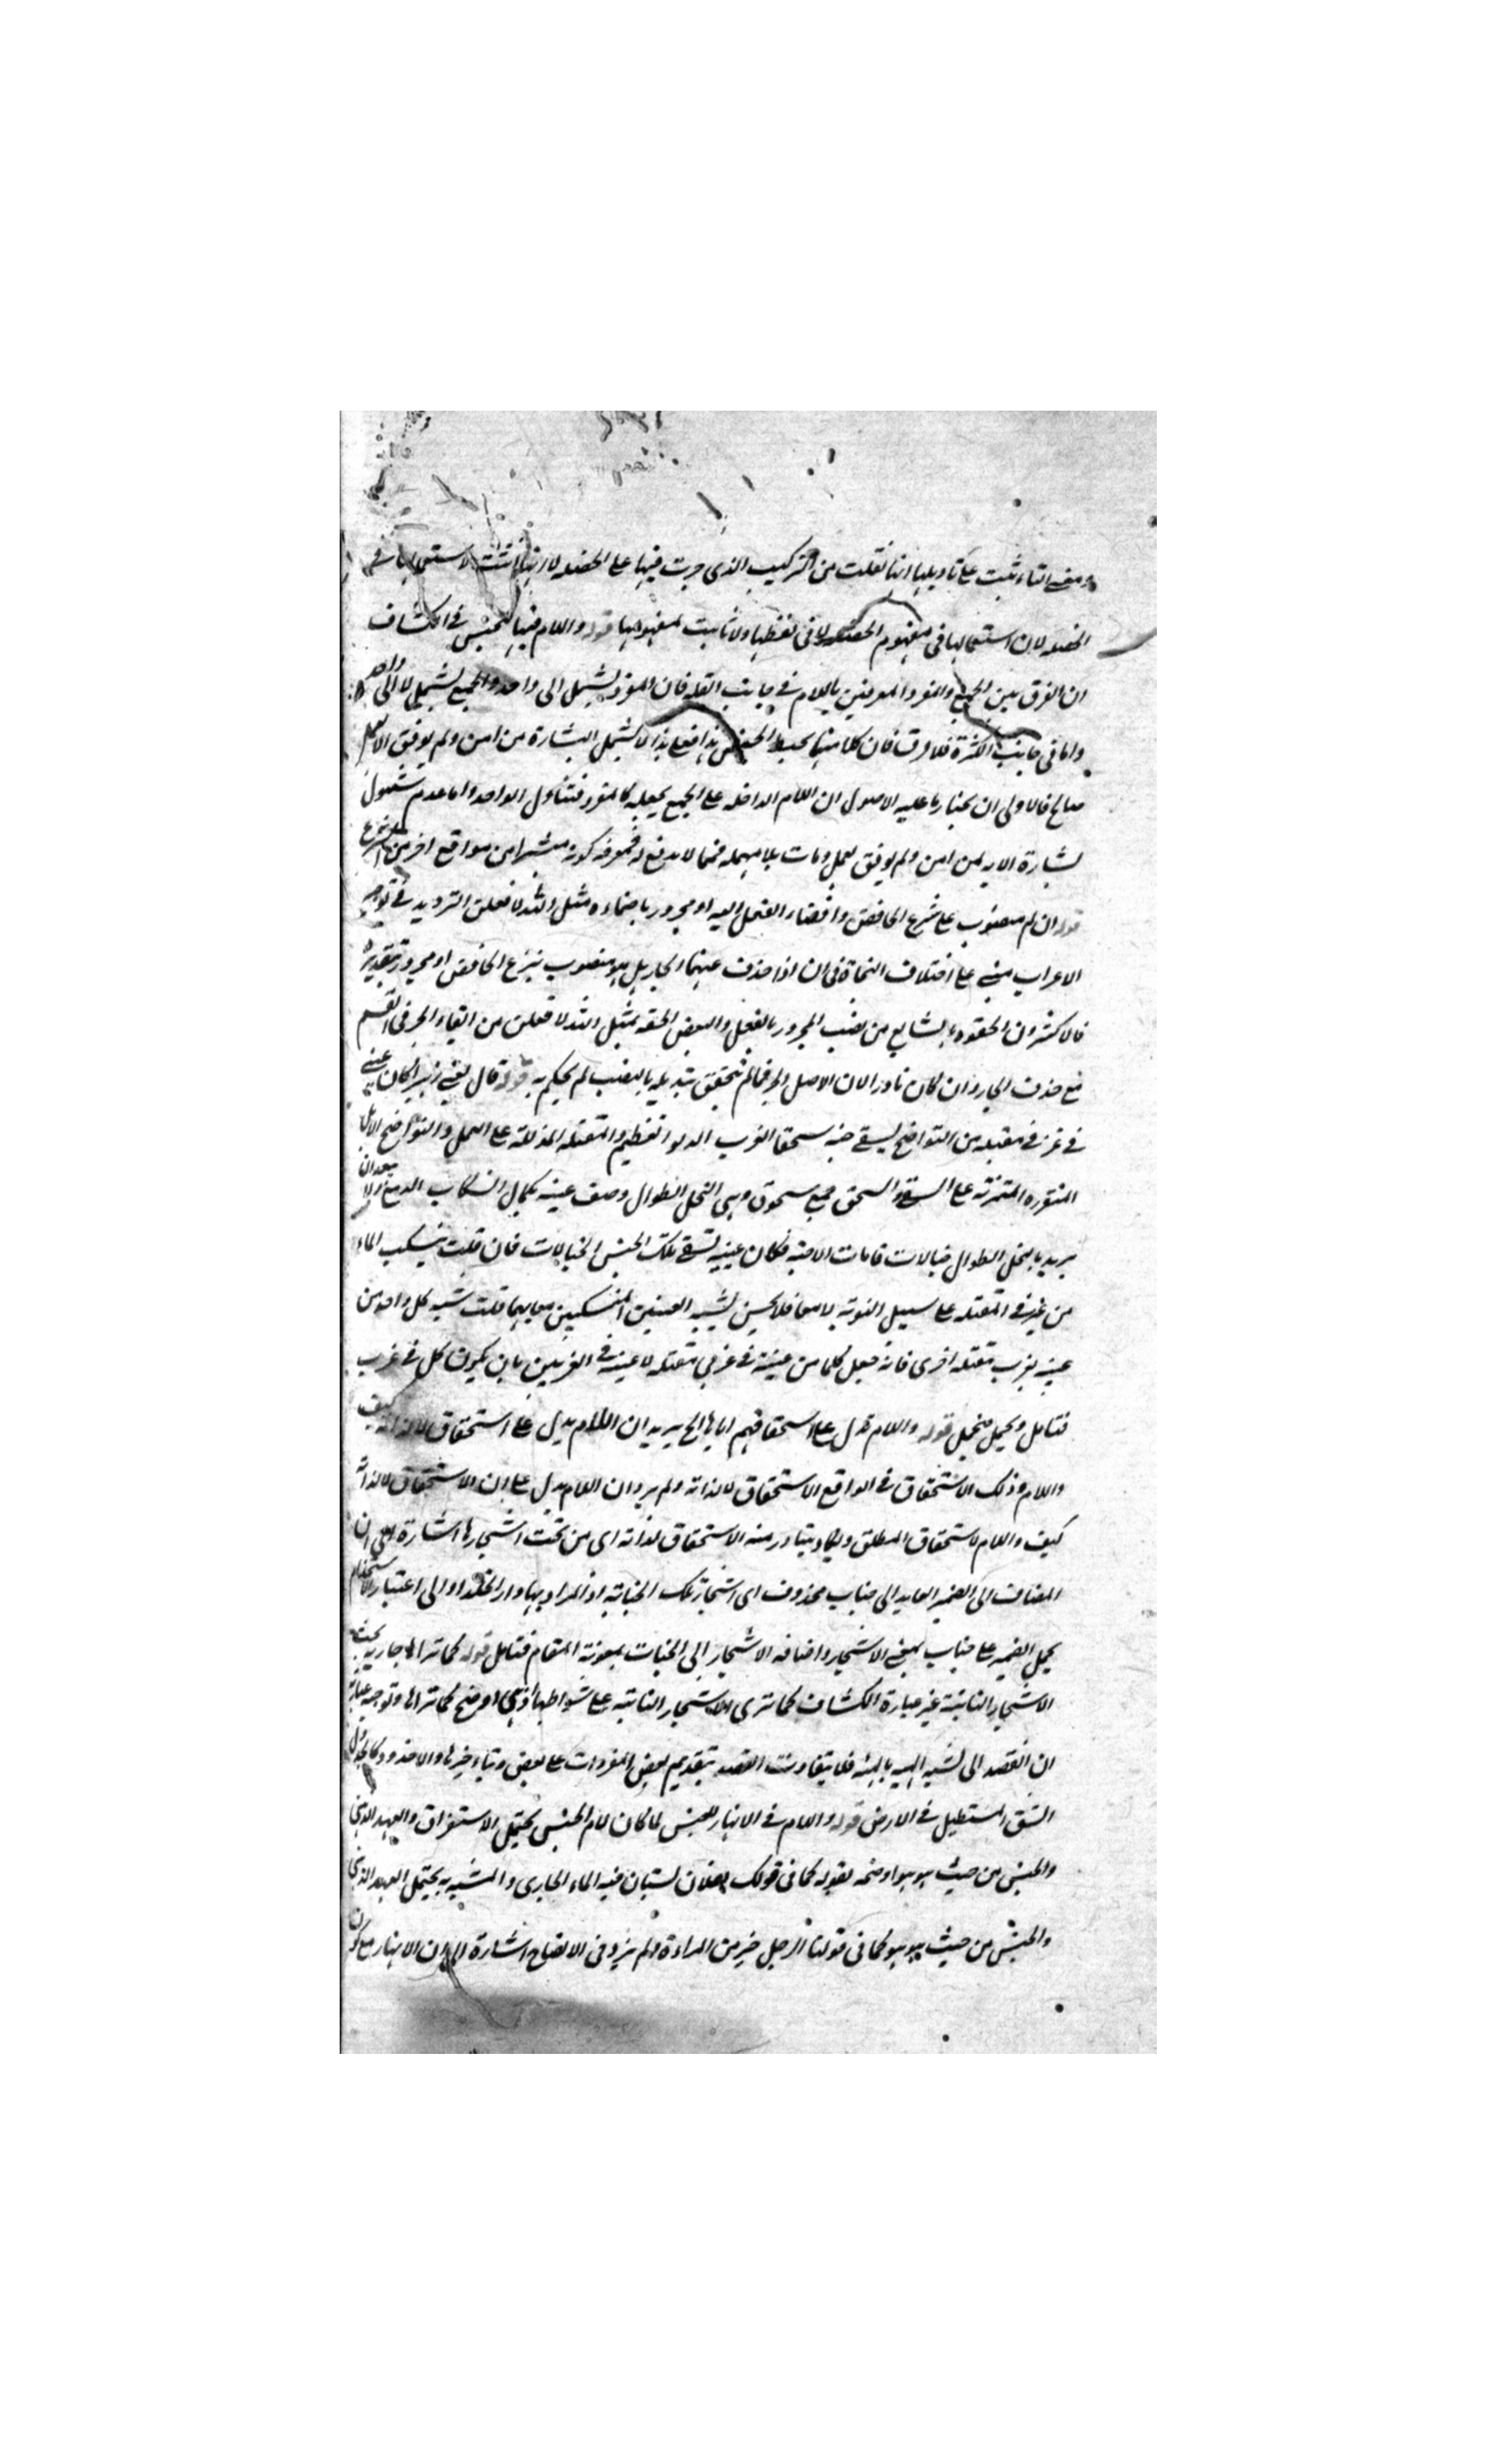 ومعنى التاء ثبت على تاويلها انها نقلت من التركيب الذى جرت فيها على الخصلة لا انها انثت لاستعمالها فى
الخصلة لان استعمالها فى مفهوم الخصلة لا فى لفظها ولا تانيث لمفهومها قوله واللام فيها للجنس فى الكشاف
ان الفرق بين الجمع والمفرد المعرفين باللام فى جانب القلة فان المفرد يشمل الى واحد والجمع يشمل لا الى واحد
واما فى جانب الكثرة فلا فرق فان كلا منهما يحيط الجنس فعلى هذا لا يشمل البشارة من امن ولم يوفق الا لعمل
صالح فالاولى ان يختار ما عليه الاصول ان اللام الداخلة على الجمع يجعله كالمفرد فتناول الواحد واما عدم شمول
بشارة الاية لمن امن ولم يوفق لعمل ومات بلا مهملة فمما لا يدفع له فمعرفة كونه مبشرا من مواقع اخر من الشرع
قوله ان لهم منصوب على نزع الخافض وافضاء الفعل اليه او مجرور باضماره مثل الله لافعلن الترديد فى توجيه
الاعراب مبنى على اختلاف النحاة فى ان اذا حذف عنهما الجار بل هو منصوب بنزع الخافض او مجرور بتقديره
فالاكثرون الحقوه بالشايع من نصب المجرور بالفعل والبعض الحقه بمثل الله لافعلن من ابقاء الجر فى القسم
مع حذف الجار وان كان نادرا لان الاصل الجر فما لم يتحقق تبديله بالنصب لم يحكم به قوله قال يعنى زهير كان عينى
فى غربى مقتلة من النواضح تسقى جنة سحقا الغرب الدلو العظيم والمقتلة المذللة على العمل والنواضح الابل
المتمرنة على السقى والسحق جمع سحوق وهى النخل الطوال وصف عينيه بكمال انسكاب الدمع
يريد بالنخل الطوال خيالات قامات الاحبة فكان عينيه تسقى تلك الجنس الخيالات فان قلت ينسكب الماء
من غربى المقتلة على سبيل النوبة لا معا فلا يحسن تشبيه العينين المنسكبين معا بهما قلت شبه كل واحد من
عينيه بغرب مقتلة اخرى فانه جعل كلا من عينيه فى غربى مقتلة لا عينيه فى الغربين بان يكون كل فى غرب
فتامل قوله واللام تدل على استحقاقهم اياها الخ يريد ان اللام يدل على استحقاق لا لذاته كيف
واللام وذلك الاستحقاق فى الواقع الاستحقاق لا لذاته ولم يرد ان اللام يدل على ان الاستحقاق لا لذاته
كيف واللام لاستحقاق المطلق ويكاد يتبادر منه الاستحقاق لذاته اى من تحت اشجارها اشارة الى ان
المضاف الى الضمير العايد الى جنات محذوف اى اشجار تلك الجنات اذ المراد بها دار الخلد او الى اعتبار الاستخدام
بحمل الضمير على جنات بمعنى الاشجار واضافة الاشجار الى الجنات بمعونة المقام فتامل قوله كما تراها جارية تحت
الاشجار النابتة غير عبارة الكشاف كما ترى الاشجار النابتة على شواطئها وهى اوضح كما تراها وتوجيه عبارة
ان القصد الى تشبيه الهيئة بالهيئة فلا يتفاوت القصد بتقديم بعض المفردات على بعض وتاخيرها والاخدود كالجدول
الشق المستطيل فى الارض قوله واللام فى الانهار للجنس لما كان لام الجنس يحتمل الاستغراق والعهد الذهنى
والجنس من حيث هو هو اوضحه بقوله كما فى قولك لفلان بستان فيه الماء الجارى والمشبه به يحتمل العهد الذهنى
والجنس من حيث هو هو كما فى قولنا الرجل خير من المراءة ولم يزد فى الايضاح اشارة الى ان الانهار مع كون